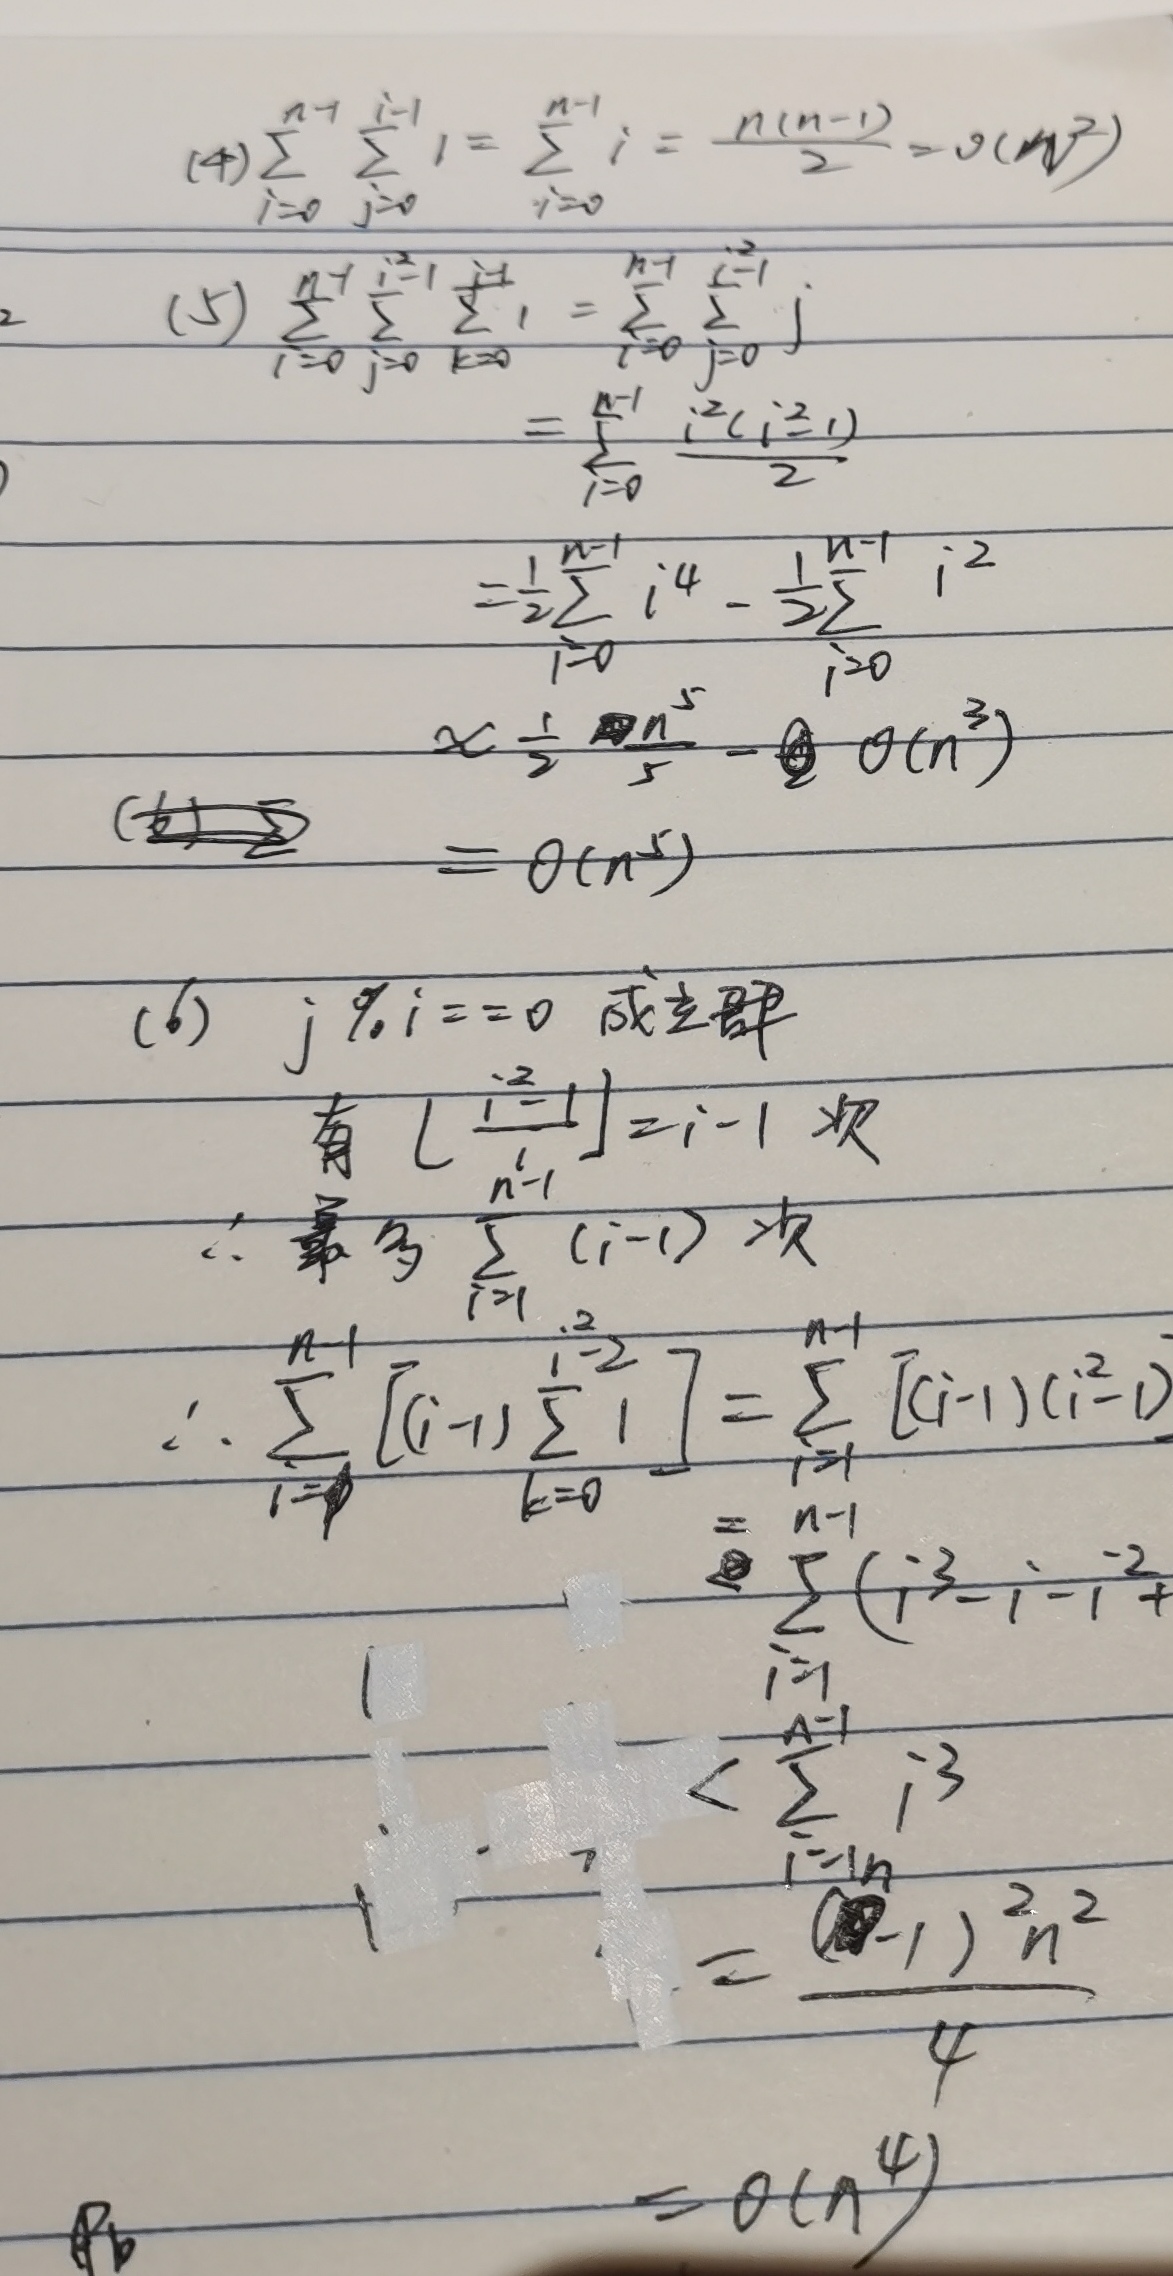 (4) \sum_{i=0}^{n-1} \sum_{j=0}^{i-1} 1 = \sum_{i=0}^{n-1} i = \frac{n(n-1)}{2} = O(n^2)
(5) \sum_{i=0}^{n-1} \sum_{j=0}^{i^2-1} \sum_{k=0}^{j-1} 1 = \sum_{i=0}^{n-1} \sum_{j=0}^{i^2-1} j
= \sum_{i=0}^{n-1} \frac{i^2(i^2-1)}{2}
= \frac{1}{2} \sum_{i=0}^{n-1} i^4 - \frac{1}{2} \sum_{i=0}^{n-1} i^2
≈ \frac{1}{2} \frac{n^5}{5} - O(n^3)
= O(n^5)
(6) j % i == 0 成立
有 ⌊\frac{i^2-1}{i}⌋ = i-1 次
∴ 最多 \sum_{i=1}^{n-1} (i-1) 次
∴ \sum_{i=1}^{n-1} [(i-1) \sum_{k=0}^{i^2-2} 1] = \sum_{i=1}^{n-1} [(i-1)(i^2-1)]
= \sum_{i=1}^{n-1} (i^3-i-i^2+
< \sum_{i=1}^{n-1} i^3
= \frac{(n-1)^2 n^2}{4}
= O(n^4)